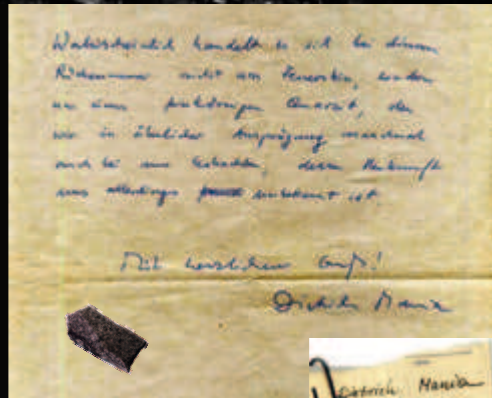 Wahrscheinlich handelt es sich bei diesem
nicht um Feuerstein, sondern
um einen Quarzit, den
wir in ähnlicher Ausprägung manchmal
auch bei uns, dessen Herkunft
uns allerdings unbekannt ist.
Mit herzlichem Gruß!
Dietrich Mania
Dietrich Mania